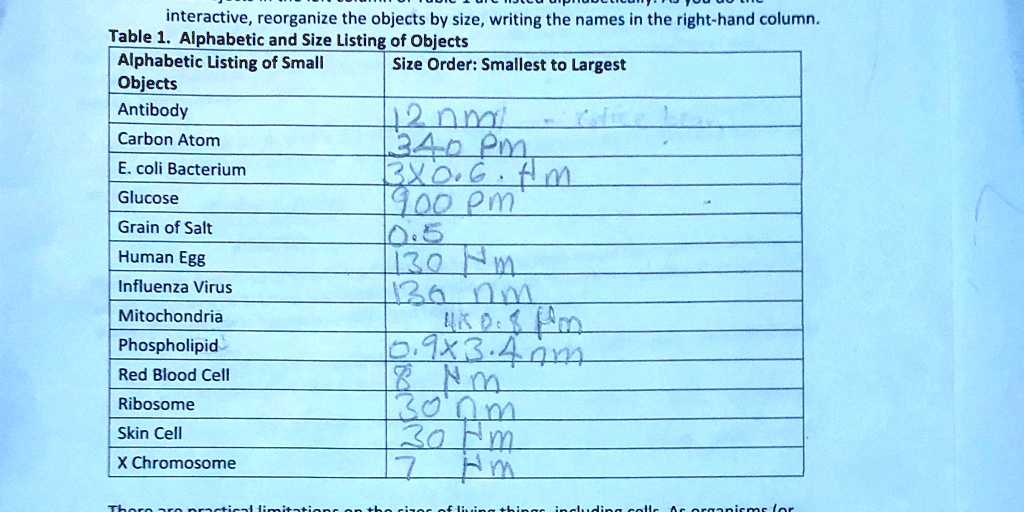 interactive, reorganize the objects by size, writing the names in the right-hand column.
Table 1. Alphabetic and Size Listing of Objects
Alphabetic Listing of Small Objects
Size Order: Smallest to Largest
Antibody 12 nm
Carbon Atom 340 Pm
E. coli Bacterium 3X0.6. μm
Glucose 900 Pm
Grain of Salt 0.5
Human Egg 130 μm
Influenza Virus 130 nm
Mitochondria 4X0.8 μm
Phospholipid 0.9X3.4 nm
Red Blood Cell 8 μm
Ribosome 30 nm
Skin Cell 30 μm
X Chromosome 7 μm